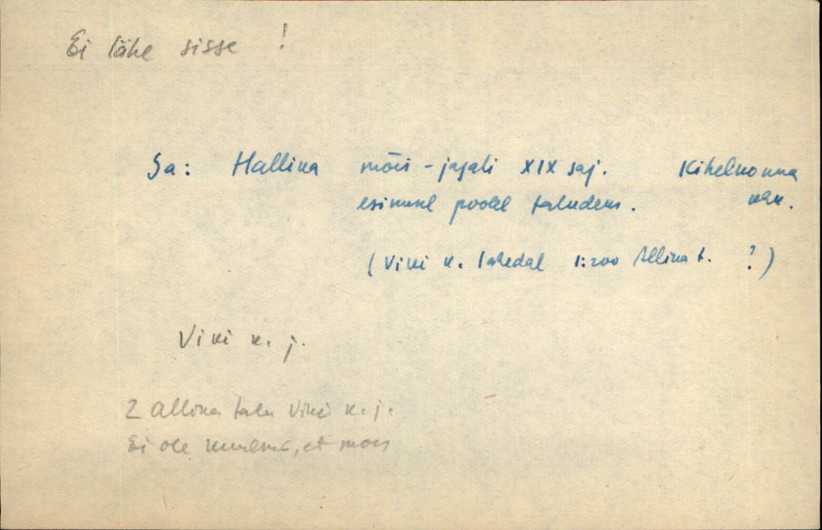 Ei lähe sisse !
Sa: Hallina mõis - jagati XIX saj. Kihelkonna
esimesel poolel taludeks. khk.
(Viki k. lähedal 1:200 Allina t. ?)
Viki k. j.
2 Allina talu Viki k. j.
Ei ole kuulnud, et mõis